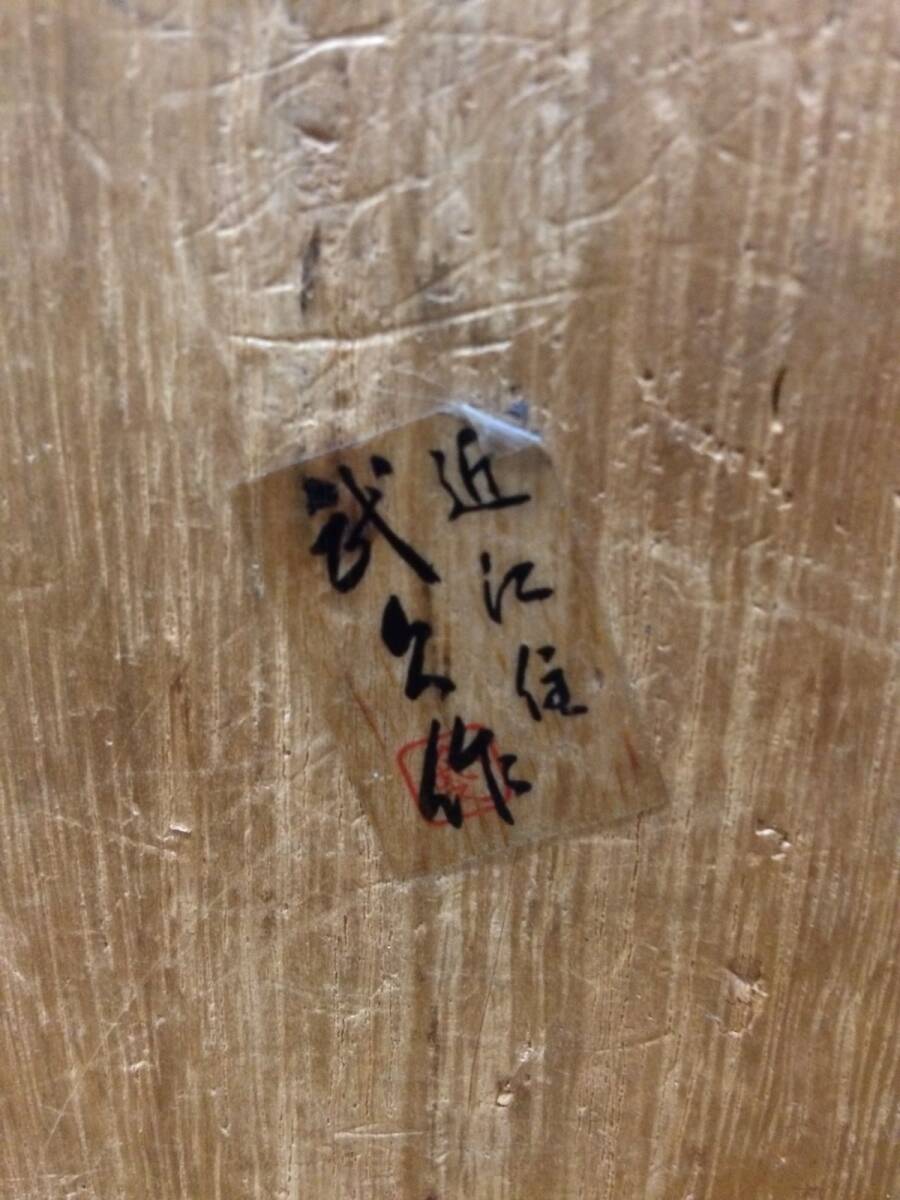 近江住
武久作